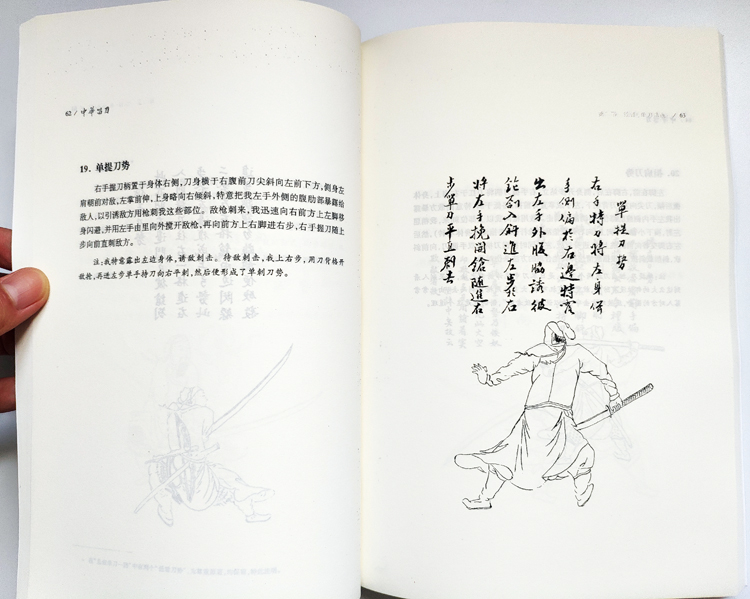 62 / 中华苗刀
19. 单提刀势
右手提刀柄置于身体右侧，刀身横于右腹前刀尖斜向左前下方，侧身左
肩朝前对敌，左掌前伸，上身略向右倾斜，特意把我左手外侧的腹肋部暴露给
敌人，以引诱敌方用枪刺我这些部位。敌枪刺来，我迅速向右前方上左脚移
身闪避，并用左手由里向外搅开敌枪，再向前方上右脚进右步，右手握刀随上
步向前直刺敌方。
注：我特意露出左边身体，诱敌刺击。待敌刺击，我上右步，用刀背格开
敌枪，再进左步单手持刀向右平刺，然后便形成了单刺刀势。
63
單提刀势
右手持刀将左身
手倒偏於右邊特露
出左手外腹脇誘彼
鎗剳入斜進左步於右
将左手挽開鎗隨進右
步單刀平直剳去